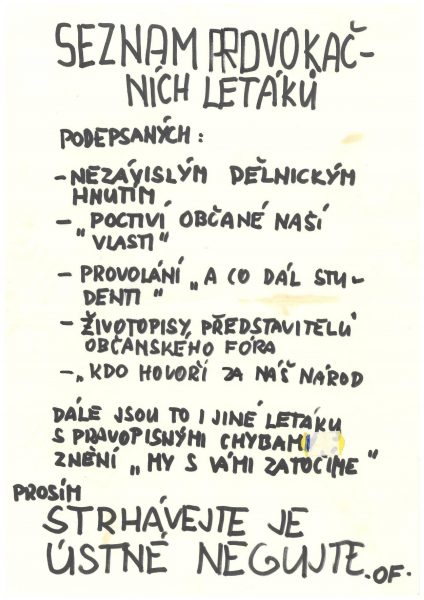 SEZNAM PROVOKAČ-
NÍCH LETÁKŮ
PODEPSANÝCH:
- NEZÁVISLÝM DĚLNICKÝM
HNUTÍM
- „POCTIVÍ OBČANÉ NAŠÍ
VLASTI"
- PROVOLÁNÍ „A CO DÁL STU-
DENTI"
- ŽIVOTOPISY PŘEDSTAVITELŮ
OBČANSKÉHO FÓRA
- „KDO HOVOŘÍ ZA NÁŠ NÁROD
DÁLE JSOU TO I JINÉ LETÁKU
S PRAVOPISNÝMI CHYBAMI
ZNĚNÍ „MY S VÁMI ZATOČÍME"
PROSÍM
STRHÁVEJTE JE
ÚSTNĚ NEGUJTE.
-OF-